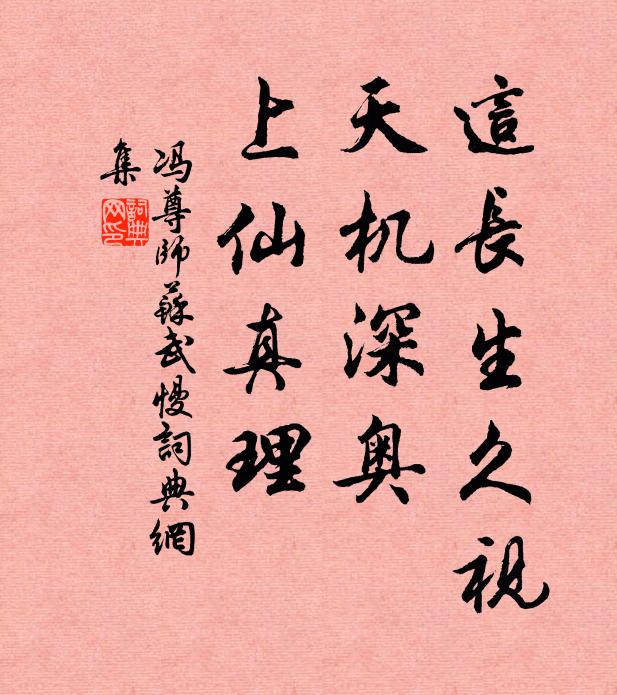 這長生久視
天机深奥
上仙真理
冯尊師蘇武慢詞典網
集
詞典
网印